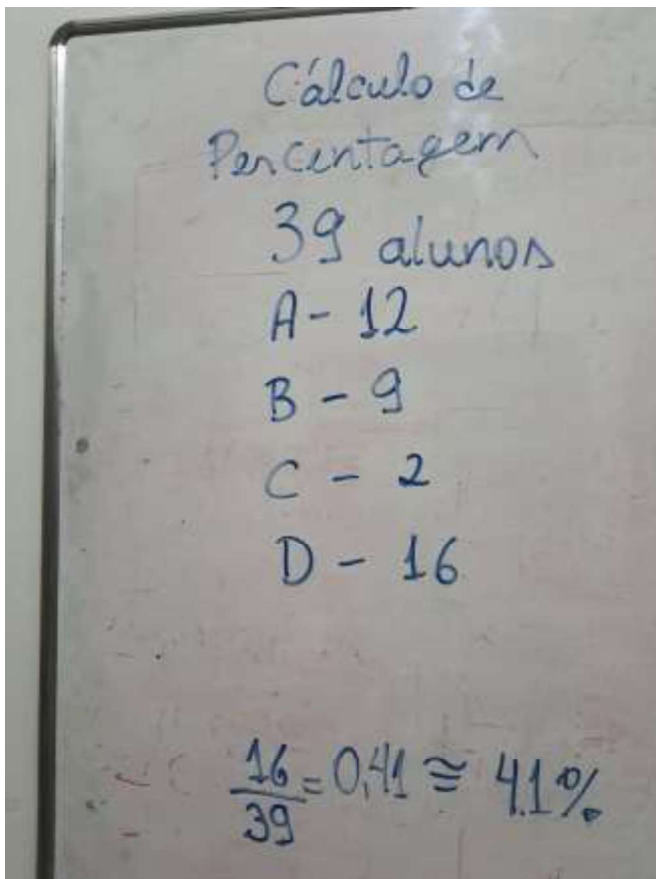 Cálculo de
Percentagem
39 alunos
A - 12
B - 9
C - 2
D - 16
16/39 = 0,41 ≅ 41%